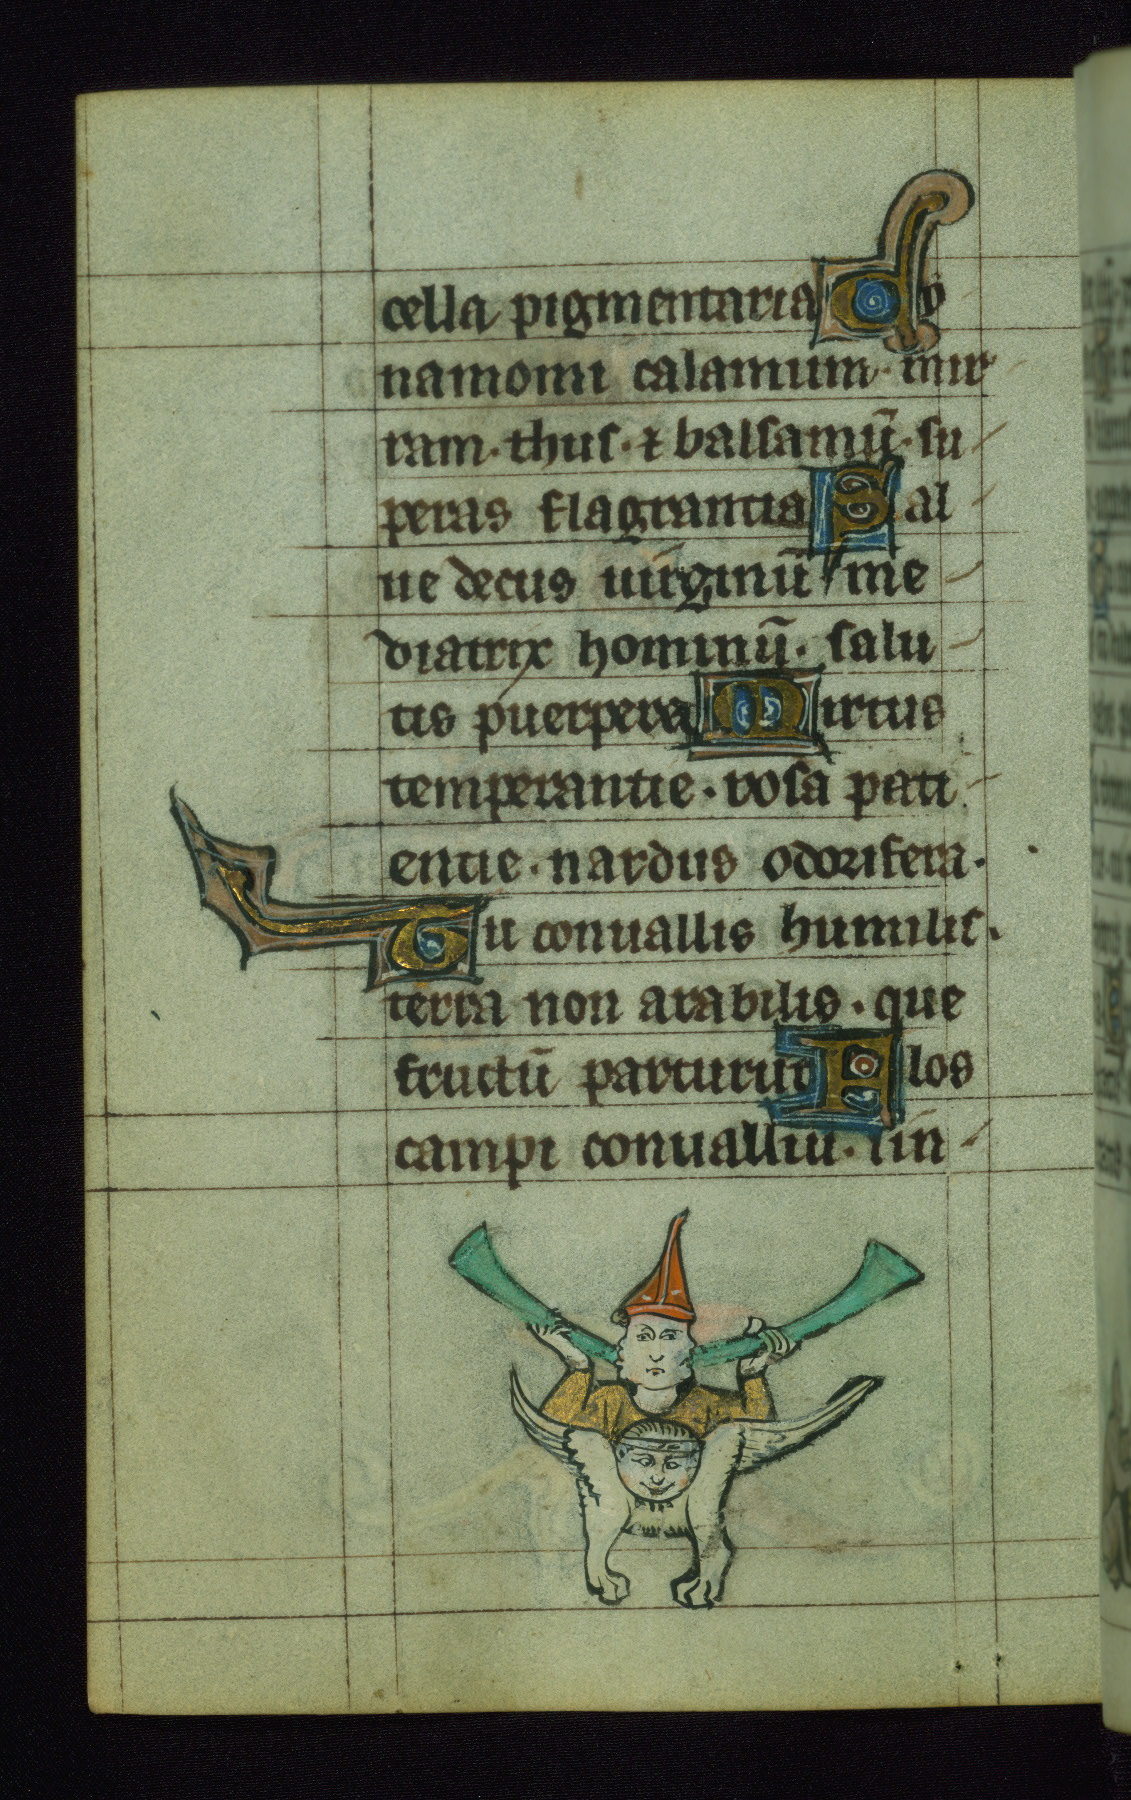 cella pigmentaria Cy
namomi calamum · mir
ram · thus · ⁊ balsamū · su
peras flagrantia Sal
ue decus uirginū me
diatrix hominū · salu
tis puerpera Mirtus
temperantie · rosa pati
entie · nardus odorifera ·
Tu conuallis humilis ·
terra non arabilis · que
fructū parturiit Flos
campi conualliū · lin